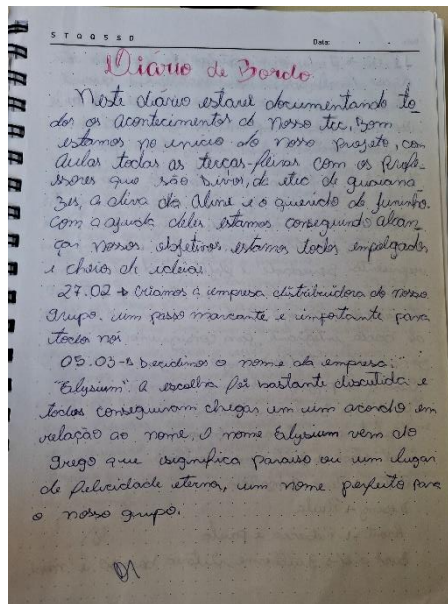 S T Q Q S S D
Data:
Diário de Bordo
Neste diário estarei documentando to_
dos os acontecimentos do nosso tcc, Bom
estamos no inicio do nosso projeto, com
aulas todas as terças-feiras com os profe_
ssores que são Divos, da etec de guaiana_
zes, a diva da Aline e o querido do
com a ajuda deles estamos conseguindo alcan_
çar nossos objetivos estamos todos empolgados
e cheio de idéias
27.02 → Criamos a empresa distribuidora do nosso
grupo. um passo marcante e importante para
todos nós
05.03 → Decidimos o nome da empresa:
"Elysium". A escolha foi bastante discutida e
todos conseguiram chegar em um acordo em
relação ao nome, O nome Elysium vem do
grego que significa paraíso ou um lugar
de felicidade eterna, um nome perfeito para
o nosso grupo.
01